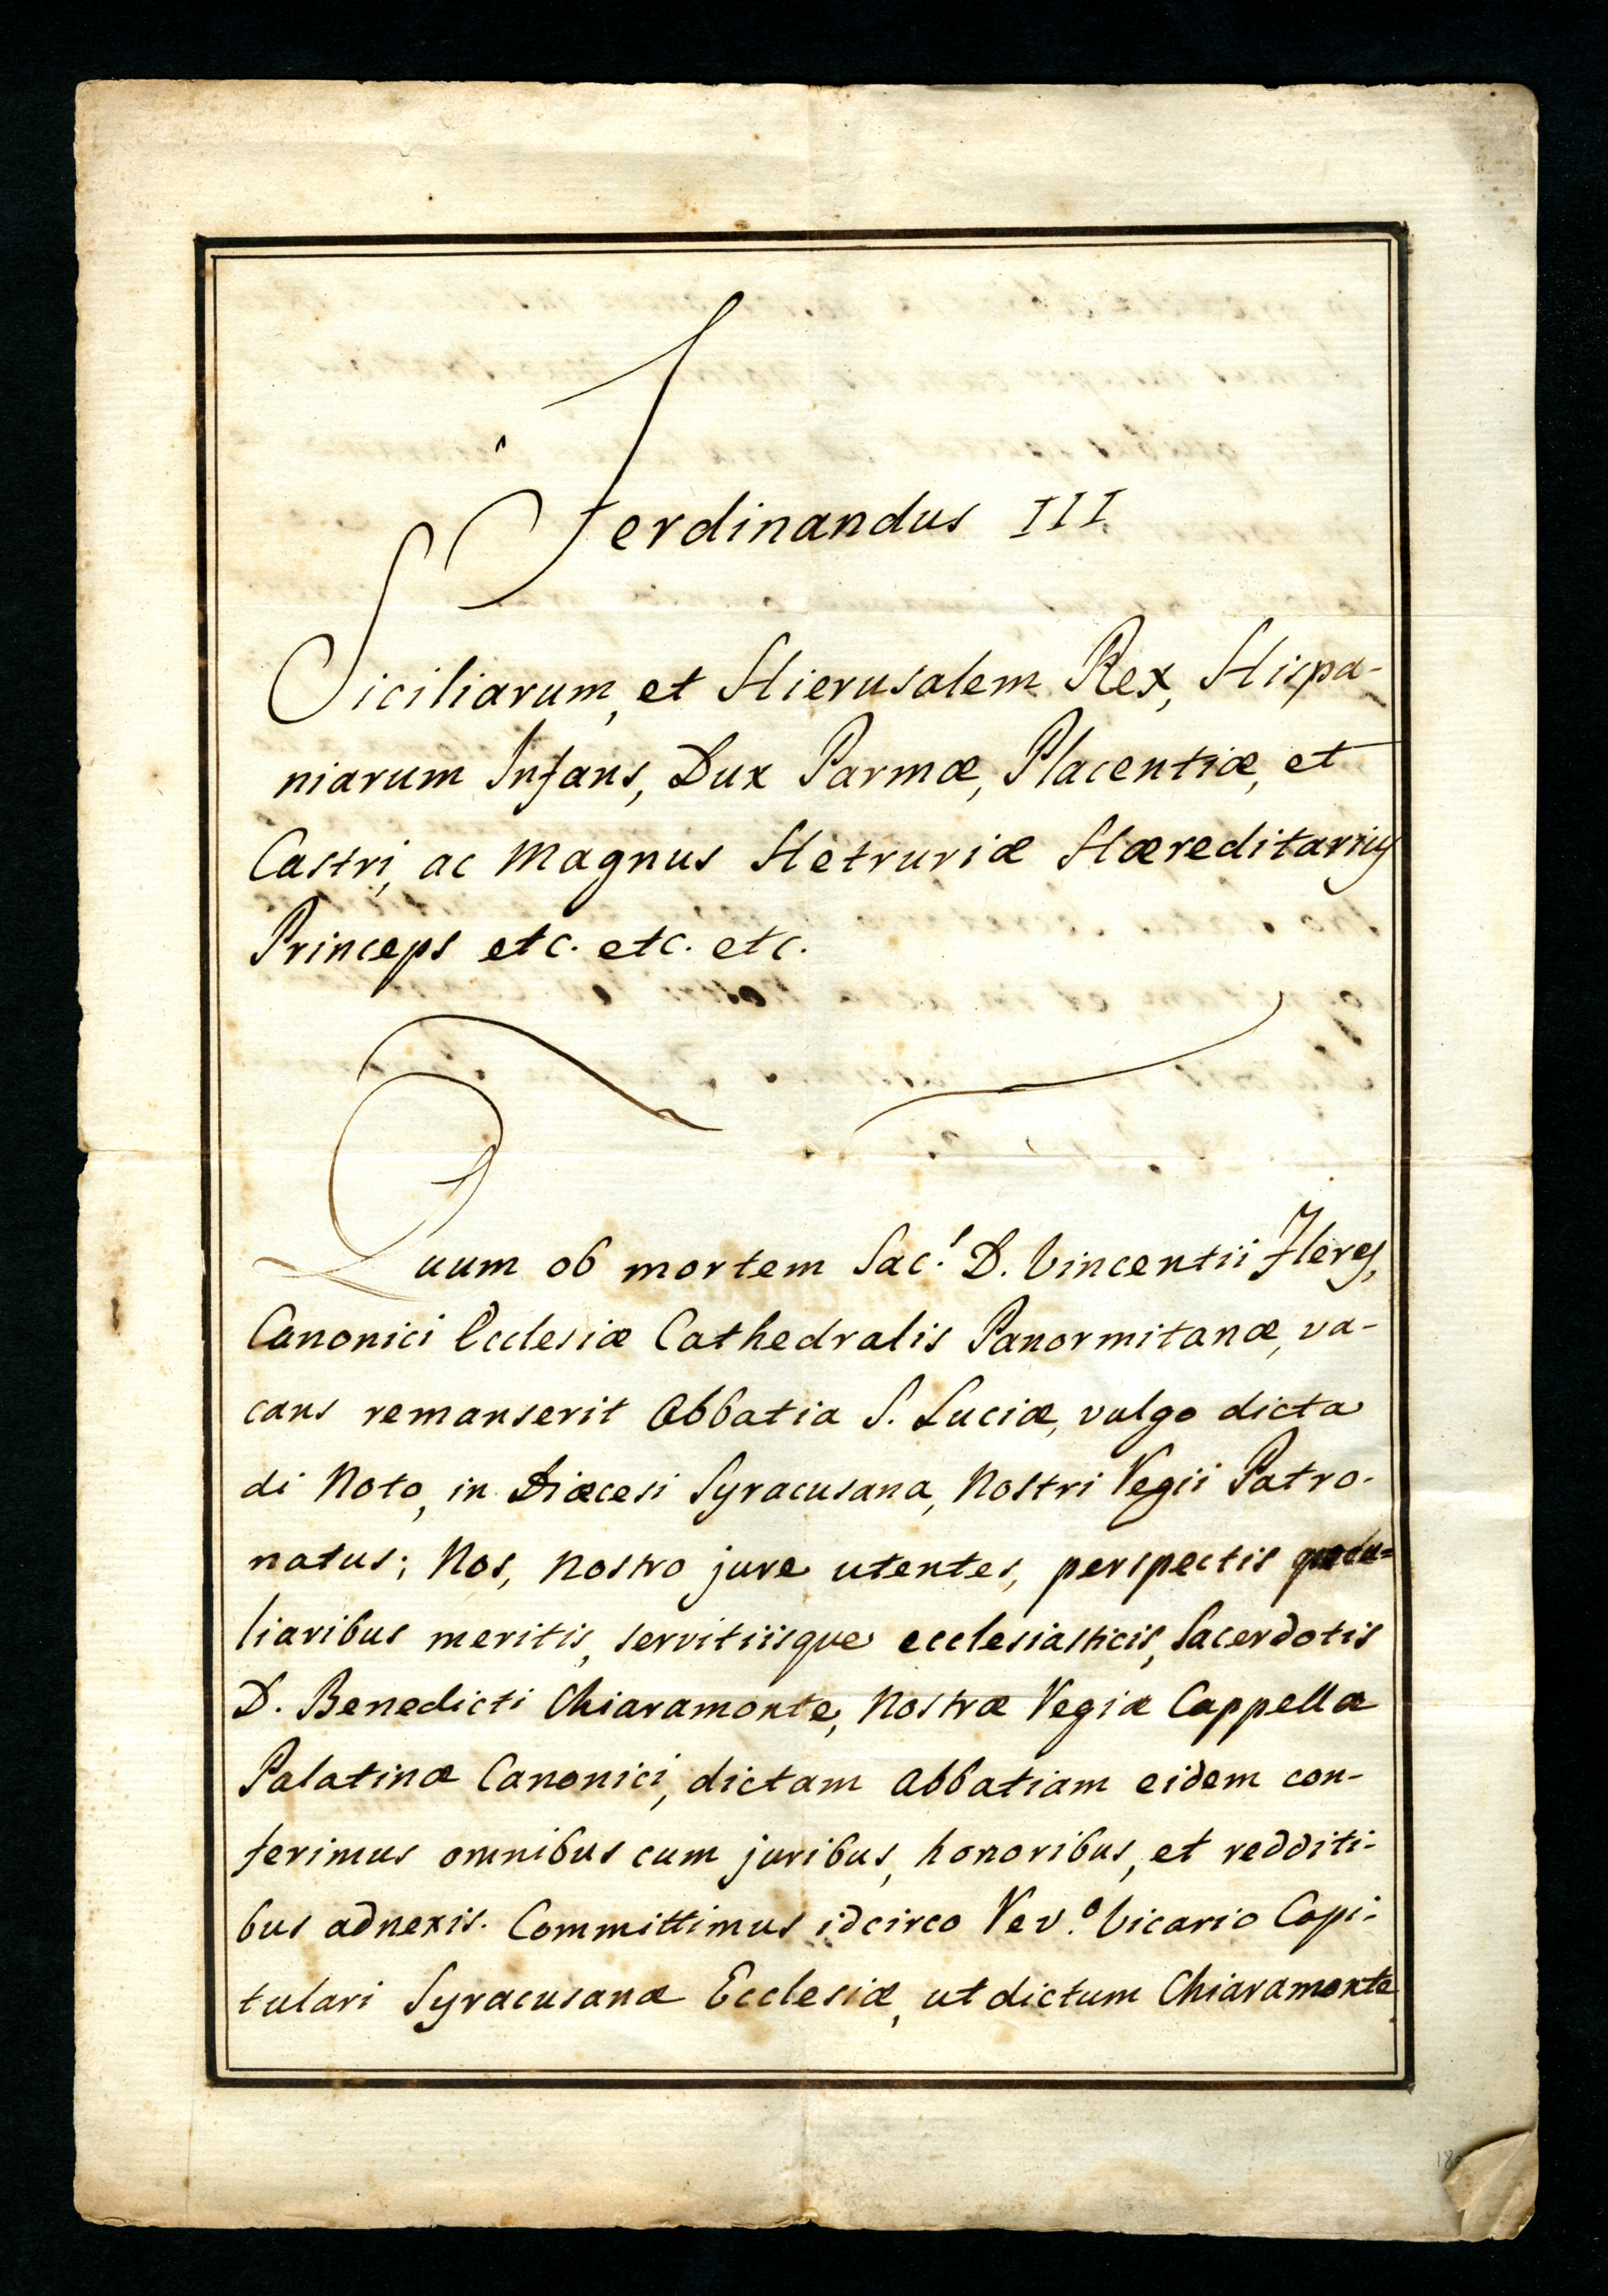 Ferdinandus III
Siciliarum, et Hierusalem Rex, Hispa-
niarum Infans, Dux Parmæ, Placentiæ, et
Castri, ac Magnus Hetruriæ Hæreditarius
Princeps etc. etc. etc.
Quum ob mortem Sac.! D. Vincentii Fleres,
Canonici Ecclesiæ Cathedralis Panormitanæ, va-
cans remanserit Abbatia S. Luciæ, vulgo dicta
di Noto, in Diœcesi Syracusana, Nostri Regii Patro-
natus; Nos, Nostro jure utentes, perspectis pecu=
liaribus meritis, servitiisque ecclesiasticis, Sacerdotis
D. Benedicti Chiaramonte, Nostræ Regiæ Cappellæ
Palatinæ Canonici, dictam Abbatiam eidem con-
ferimus omnibus cum juribus, honoribus, et redditi-
bus adnexis. Committimus idcirco Rev.º Vicario Capi-
tulari Syracusanæ Ecclesiæ, ut dictum Chiaramonte